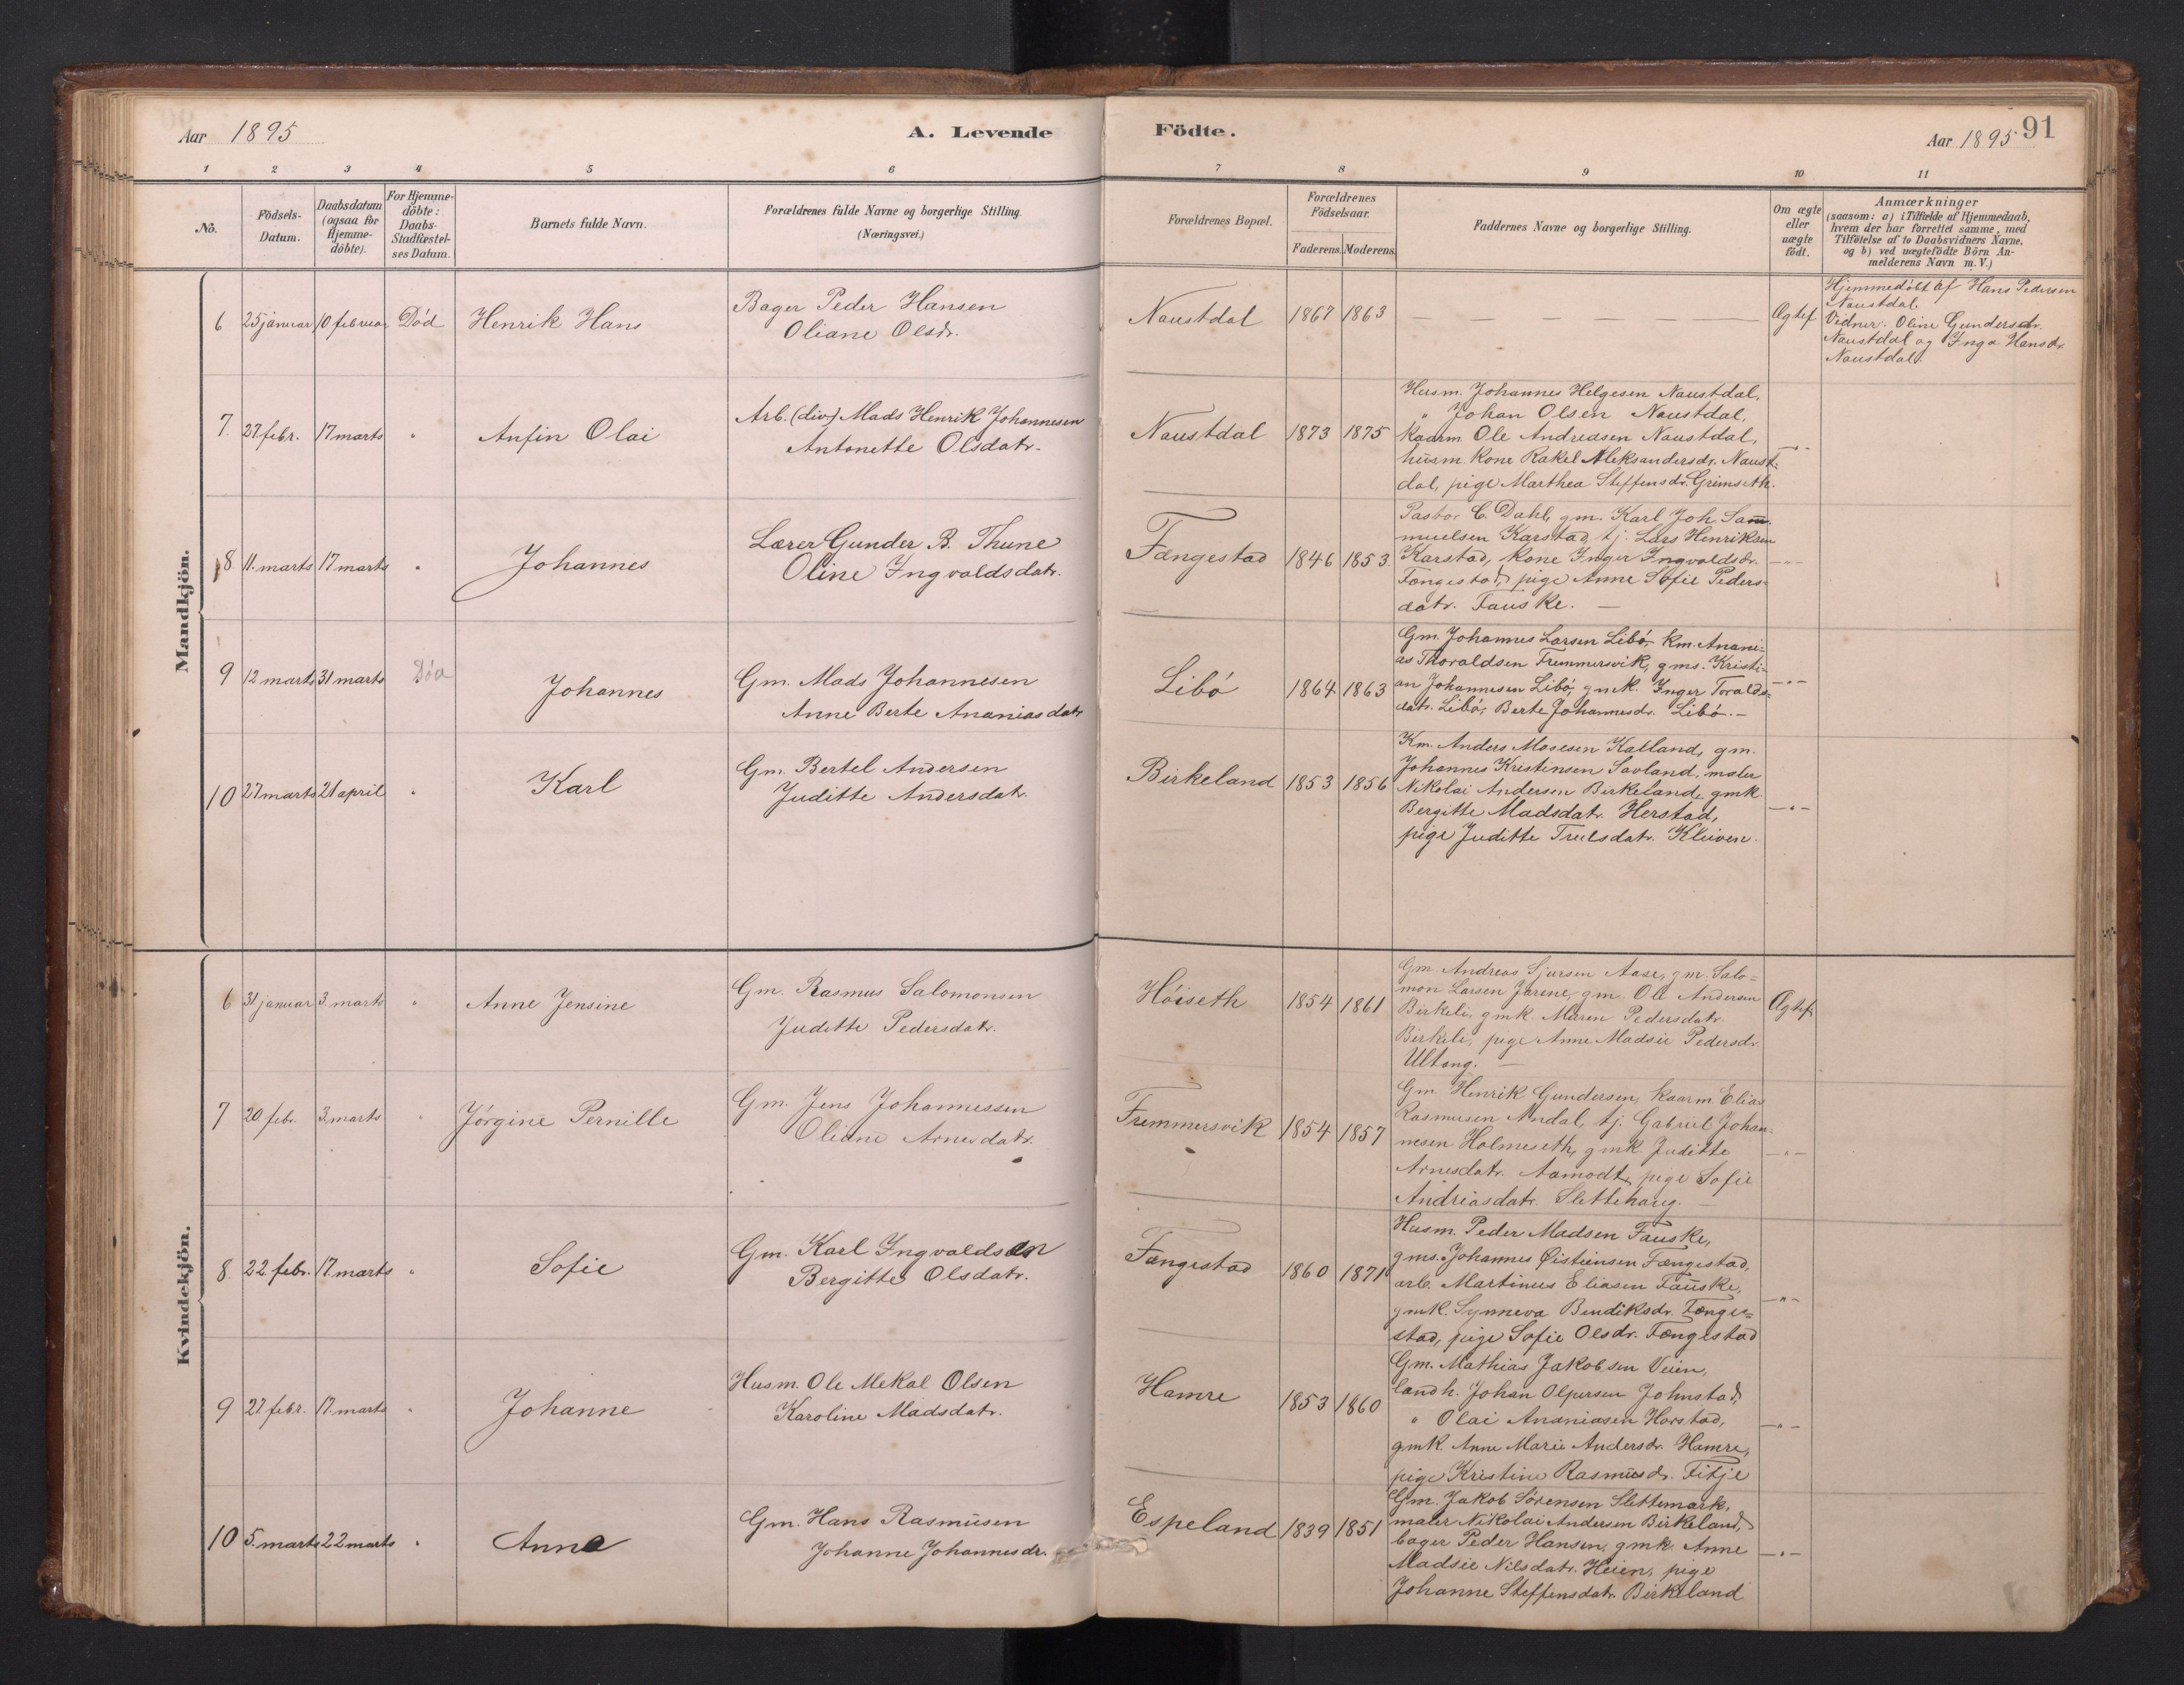 Aar 1895
A. Levende
Födte.
Aar 1895 91
1 2 3 4 5 6 7 8 9 10 11
No.
Födsels-
Datum.
Daabsdatum
(ogsaa for
Hjemme-
döbte).
For Hjemme-
döbte:
Daabs-
Stadfæstel-
ses Datum.
Barnets fulde Navn.
Forældrenes fulde Navne og borgerlige Stilling.
(Næringsvei.)
Forældrenes Bopæl.
Forældrenes
Födselsaar.
Faderens. Moderens.
Faddernes Navne og borgerlige Stilling.
Om ægte
eller
uægte
födt.
Anmærkninger
(saasom: a) i Tilfælde af Hjemmedaab,
hvem der har forrettet samme, med
Tilföielse af to Daabsvidners Navne,
og b) ved uægtefödte Börn An-
melderens Navn m.V.)
Mandkjön.
6 25 januar 10 februar Död Henrik Hans
Bager Peder Hansen
Oliane Olsdr.
Naustdal 1867 1863 — — — — — — Ægtef
Hjemmedöbt af Hans Pedersen
Naustdal.
Vidner: Oline Gundersdr.
Naustdal og Inga Hansdr.
Naustdal.
7. 27 febr. 17 marts " Anfin Olai
Arb. (div) Mads Henrik Johannesen
Antonette Olsdatr.
Naustdal 1873 1875
Husm. Johannes Helgesen Naustdal,
" Johan Olsen Naustdal,
kaarm. Ole Andreasen Naustdal,
husm. kone Rakel Aleksandersdr. Naust-
dal, pige Marthea Steffensdr. Grimseth.
—"—
8 11. marts 17 marts " Johannes
Lærer Gunder B. Thune
Oline Ingvaldsdatr.
Fængestad 1846 1853.
Pastor C. Dahl, gm. Karl Joh. Sam-
muelsen Karstad, tj. Lars Henriksen
Karstad, kone Inger Ingvaldsdr.
Fængestad, pige Anne Sofie Peders-
datr. Fauske. —
—"—
9 12 marts 31 marts Död Johannes
Gm. Mads Johannesen
Anne Berte Ananiasdatr
Libö 1864 1863
Gm. Johannes Larsen Libö, km. Anani-
as Thoraldsen Fremmersvik, gms. Kristi-
an Johannesen Libö, gmk. Inger Toralds-
datr. Libö, Berte Johannesdr. Libö. —
—"—
10 27 marts 21 april " Karl
Gm. Bertel Andersen
Juditte Andersdatr.
Birkeland 1853 1856
Km. Anders Mosesen Kalland, gm.
Johannes Kristensen Savland, maler
Nikolai Andersen Birkeland, gmk.
Bergitte Madsdatr. Herstad,
pige Juditte Trulsdatr. Kleiven.
—"—
Kvindekjön.
6 31 januar 3. marts " Anne Jensine
Gm. Rasmus Salomonsen
Juditte Pedersdatr.
Höiseth 1854 1861
Gm. Andreas Sjursen Aase, gm. Salo-
mon Larsen Jarene, gm. Ole Andersen
Birkeli, gmk. Maren Pedersdatr.
Birkeli, pige Anne Madsie Pedersdr.
Ultang. —
Ægtef
7 20 febr. 3 marts " Jörgine Pernille
Gm. Jens Johannessen
Oliane Arnesdatr.
Fremmersvik 1854 1857
Gm. Henrik Gundersen, kaarm. Elias
Rasmusen Andal, tj. Gabriel Johan-
nesen Holmeseth, gmk. Juditte
Arnesdatr. Aamodt, pige Sofie
Andreasdatr. Slettehaug. —
—"—
8. 22. febr. 17. marts " Sofie
Gm. Karl Ingvaldsen
Bergitte Olsdatr.
Fængestad 1860 1871
Husm. Peder Madsen Fauske,
gms. Johannes Øisteinsen Fængestad,
arb. Martinus Eliasen Fauske,
gmk. Synneva Bendiksdr. Fænge-
stad, pige Sofie Olsdr. Fængestad
—"—
9 27. febr. 17. marts " Johanne
Husm. Ole Mekal Olsen
Karoline Madsdatr.
Hamre 1853 1860
Gm. Mathias Jakobsen Veien,
landh. Johan Olpersen Johnstad,
" Olai Ananiasen Horstad,
gmk. Anne Marie Andersdr. Hamre,
pige Kristine Rasmusdr. Fitje
—"—
10 5. marts 22 marts " Anna
Gm. Hans Rasmusen
Johanne Johannesdr.
Espeland 1839 1851
Gm. Jakob Sörensen Slettemark,
maler Nikolai Andersen Birkeland,
bager Peder Hansen, gmk. Anne
Madsie Nilsdatr. Heien, pige
Johanne Steffensdatr. Birkeland
—"—